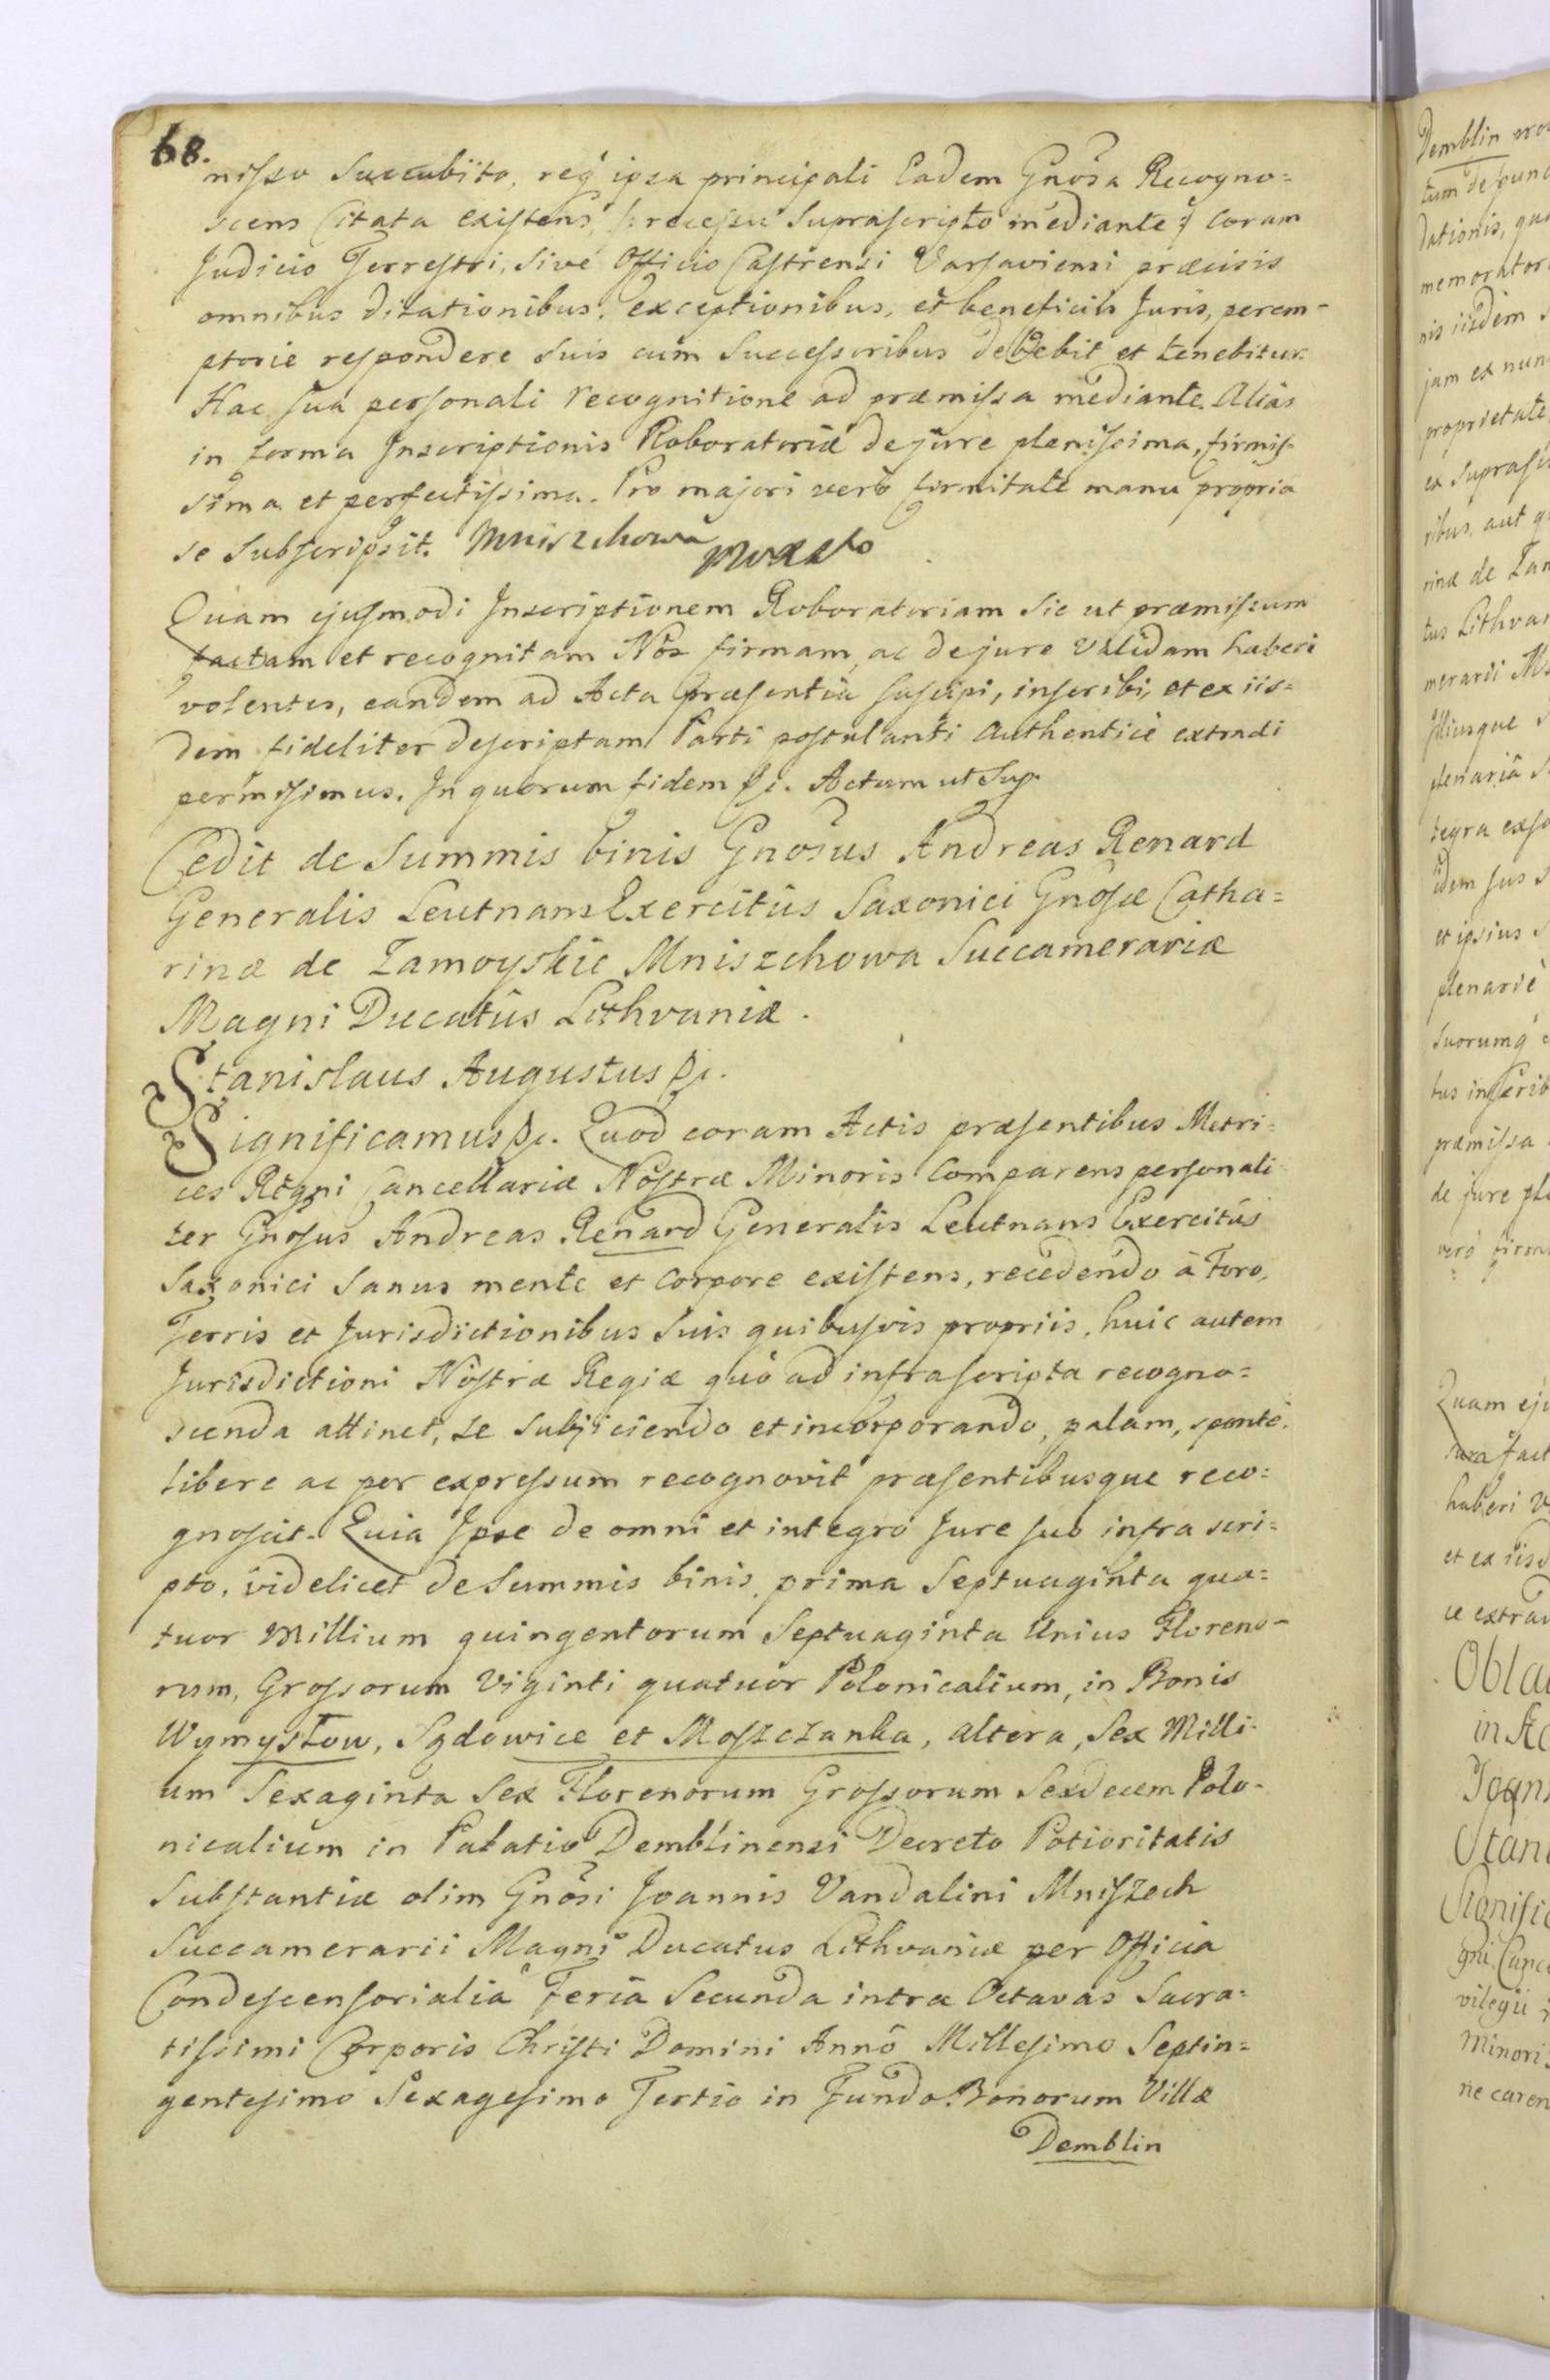 68.
nisso Succubito, req́ ipsa principali Eadem Gnosa Recogno=
scens Citata existens, /: recessu Suprascripto mediante :/ coram
Judicio Terrestri, Sive Officio Castrensi Varsaviensi præcisis
omnibus dilationibus, exceptionibus, et beneficiis Juris, perem-
ptorie respondere Suis cum Successoribus debebit et tenebitur.
Hac sua personali recognitione ad præmissa mediante. Alias
in forma Inscriptionis Roboratoriæ de jure plenissima, firmis-
sima et perfectissima. Pro majori vero firmitate manu propria
se Subscripsit. Mniszchowa
Quam ejusmodi Inscriptionem Roboratoriam Sic ut præmissum
factam et recognitam Nos firmam, ac de jure validam haberi
volentes, eandem ad Acta præsentia suscipi, inscribi, et ex iis=
dem fideliter descriptam Parti postulanti Authenticè extradi
permisimus. In quorum fidem &c. Actum ut Sup.
Cedit de Summis binis Gnosus Andreas Renard
Generalis Leutnans Exercitûs Saxonici Gnosæ Catha=
rinæ de Zamoyskie Mniszchowa Succamerariæ
Magni Ducatûs Lithvaniæ.
Stanislaus Augustus &c.
Significamus &c. Quod coram Actis præsentibus Metri=
ces Regni Cancellariæ Nostræ Minoris Comparens personali-
ter Gnosus Andreas Renard Generalis Leutnans Exercitûs
Saxonici Sanus mente et Corpore existens, recedendo à Foro,
Terris et Jurisdictionibus Suis quibusvis propriis, huic autem
Jurisdictioni Nostræ Regiæ quò ad infrascripta recogno=
scenda attinet, se subjiciendo et incorporando, palam, sponte,
libere ac per expressum recognovit præsentibusque reco=
gnoscit. Quia Ipse de omni et integro Jure suo infra scri=
pto, videlicet de Summis binis, prima Septuaginta qua=
tuor Millium quingentorum Septuaginta Unius Floreno-
rum, Grossorum Viginti quatuor Polonicalium, in Bonis
Wymysłow, Sędowice et Moszczanka, altera, Sex Milli-
um Sexaginta Sex Florenorum Grossorum Sexdecem Polo-
nicalium in Palatio Demblinensi Decreto Potioritatis
Substantiæ olim Gnosi Joannis Vandalini Mniszech
Succamerarii Magni Ducatus Lithvaniæ per Officia
Condescensorialia Feria Secunda intra Octavas Sacra=
tissimi Corporis Christi Domini Anno Millesimo Septin=
gentesimo Sexagesimo Tertio in Fundo Bonorum Villæ
Demblin
Demblin
dationis,
memorator
nis iisdem
jam ex nun
proprietate
ex suprasc
ribus, aut
rinæ de Zam
tus Lithvan
merarii
Illiusque
plenaria
tegra
idem Jus
et ipsius
plenariè
suorumq́
tus inscrib
præmissa
de jure ple
verò firm
Quam eju
fact
haberi
et ex iisd
extrad
Obla
in
Joan
Stani
Signific
gni Canc
vilegii
Minori
ne caren